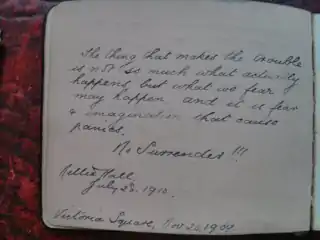 The thing that makes the trouble
is not so much what actually
happens, but what we fear
may happen and it is fear
& imagination that cause
panics.
No Surrender!!!
Nellie Hall.
July 22. 1910.
Victoria Square, Nov 22. 1909.